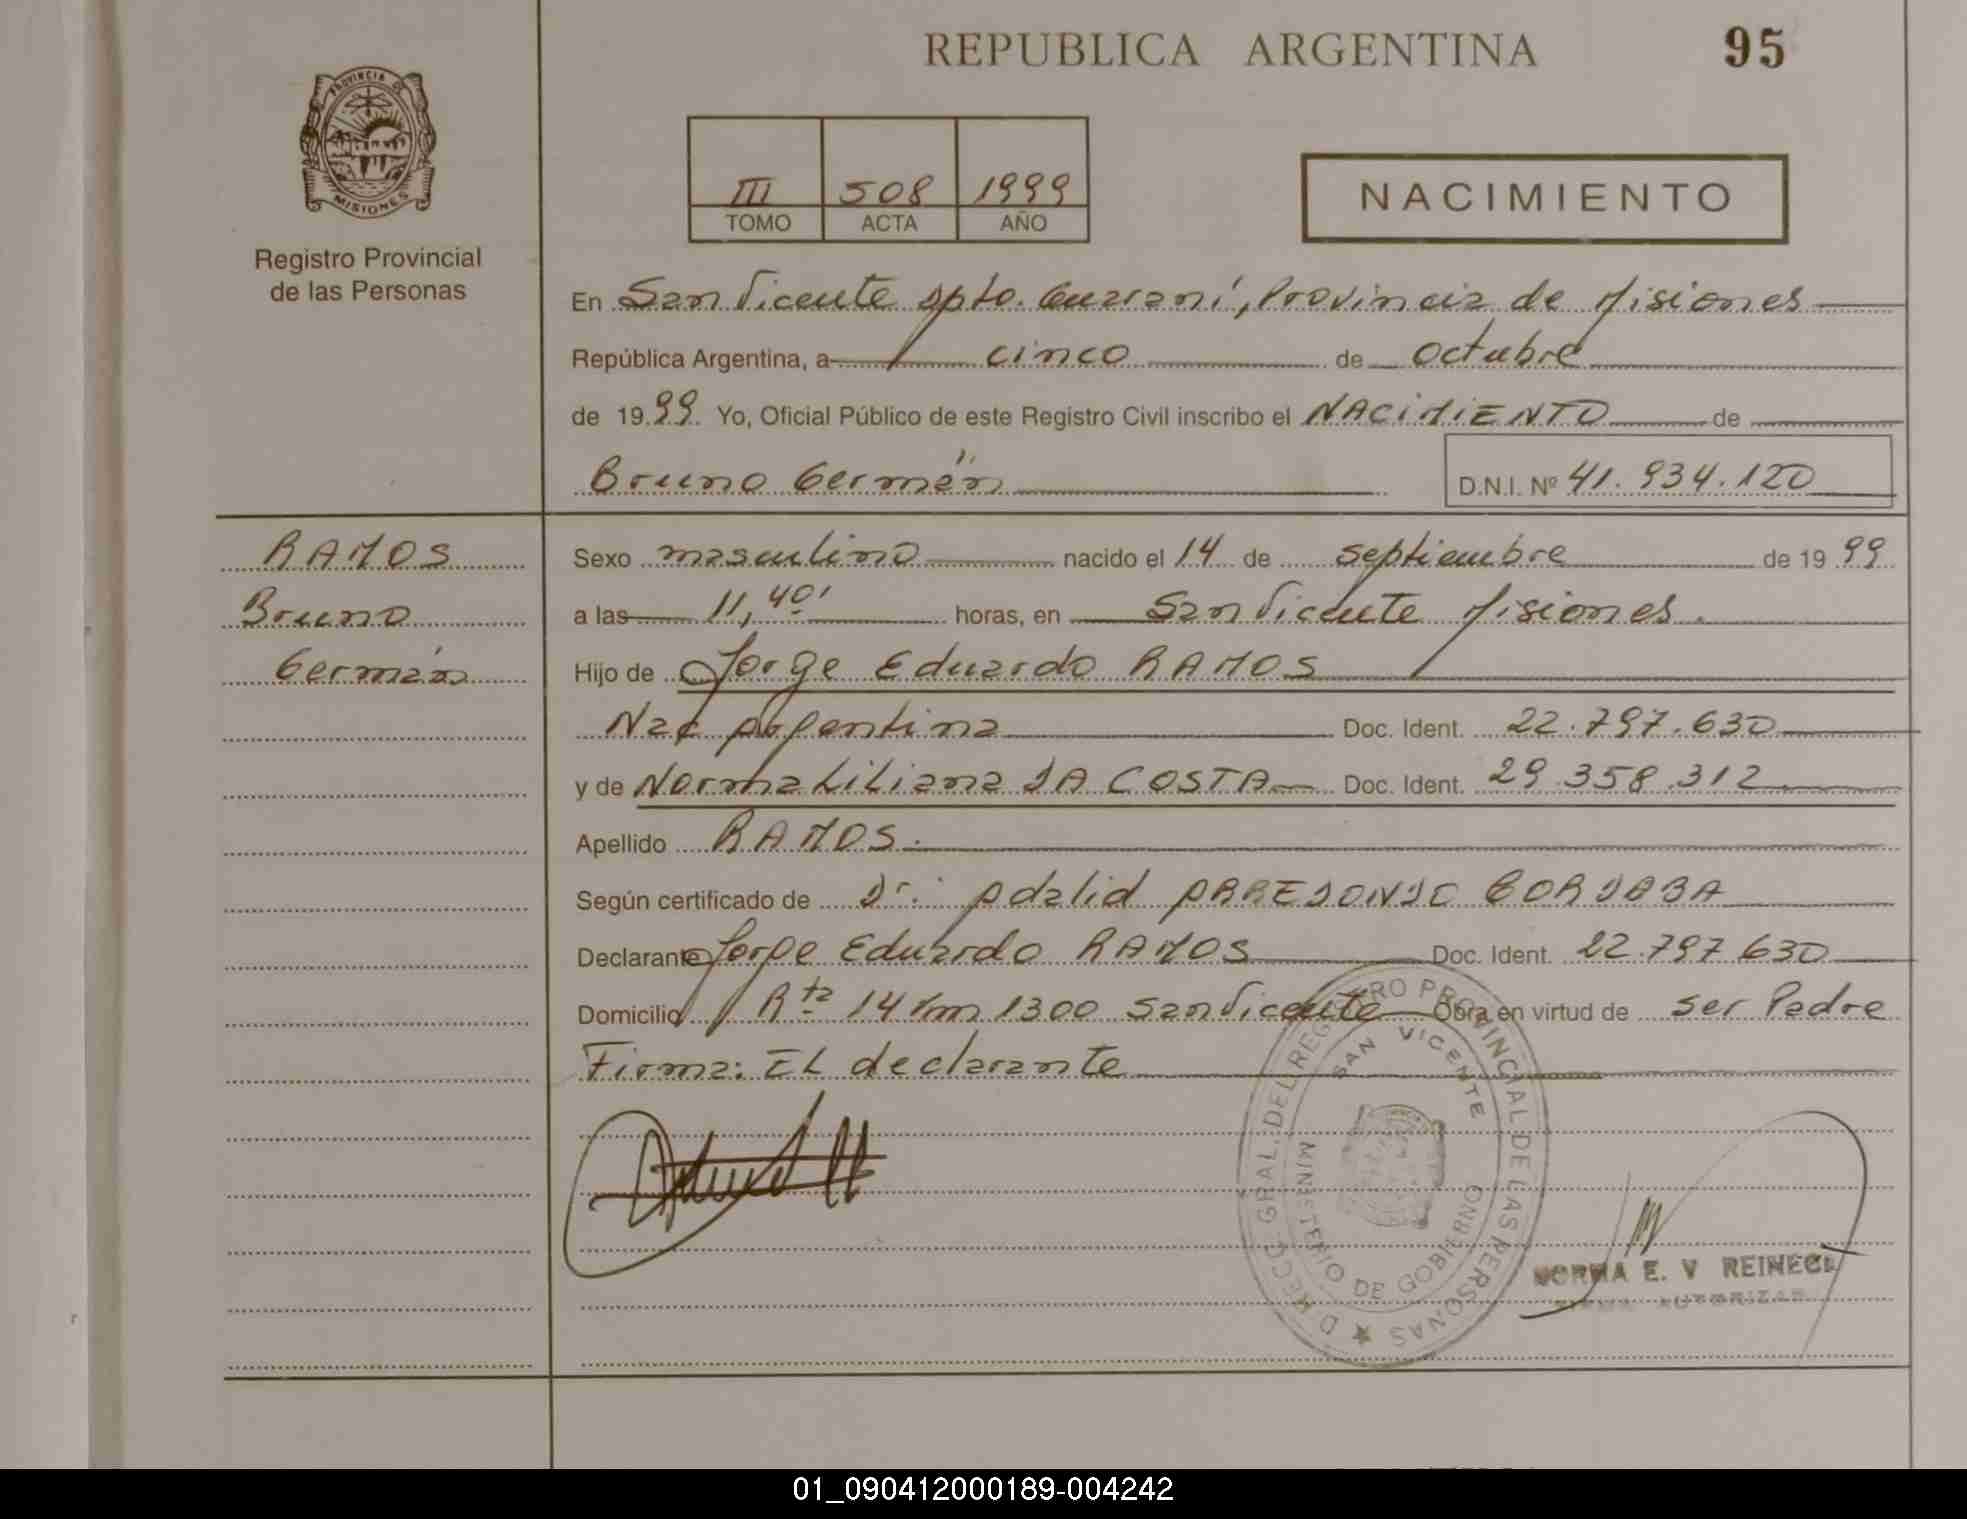 REPUBLICA ARGENTINA
95
PROVINCIA DE
MISIONES
Registro Provincial
de las Personas
III 508 1999
TOMO ACTA AÑO
NACIMIENTO
En San Vicente Dpto. Guaraní, Provincia de Misiones
República Argentina, a cinco de octubre
de 1999 Yo, Oficial Público de este Registro Civil inscribo el NACIMIENTO de
Bruno Germán
D.N.I. Nº 41.934.120
RAMOS
Bruno
Germán
Sexo masculino nacido el 14 de septiembre de 1999
a las 11,40' horas, en San Vicente Misiones.
Hijo de Jorge Eduardo RAMOS
Nac Argentina Doc. Ident. 22.797.630
y de Norma Liliana DA COSTA Doc. Ident. 29.358.312
Apellido RAMOS.
Según certificado de Dr. Adalid ARREDONDO CORDOBA
Declarante Jorge Eduardo RAMOS Doc. Ident. 22.797.630
Domicilio Rta 14 Km 1300 San Vicente Obra en virtud de ser Padre
Firma: El declarante
DIRECC. GRAL. DEL REGISTRO PROVINCIAL DE LAS PERSONAS
SAN VICENTE
MINISTERIO DE GOBIERNO
NORMA E. V REINECK
01_090412000189-004242